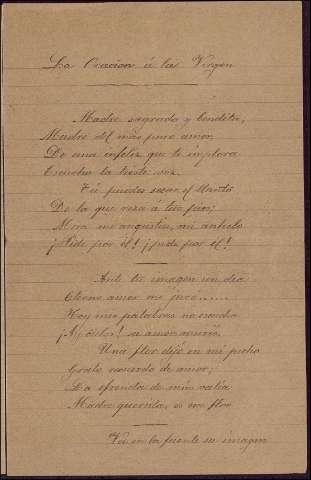 La Oracion á la Virgen
Madre sagrada y bendita,
Madre del más puro amor,
De una infeliz que te implora
Escucha la triste voz.
Tú puedes secar el llanto
De la que reza á tus piés;
Mira mi angustia, mi anhelo
¡Pide por él! ¡pide por él!
Ante tu imagen un dia
Eterno amor me juró......
Hoy mis palabras no escucha
¡Ay dolor! su amor murió.
Una flor dejó en mi pecho
Grato recuerdo de amor;
La ofrenda de más valia
Madre querida, es esa flor
Ve en la fuente su imagen